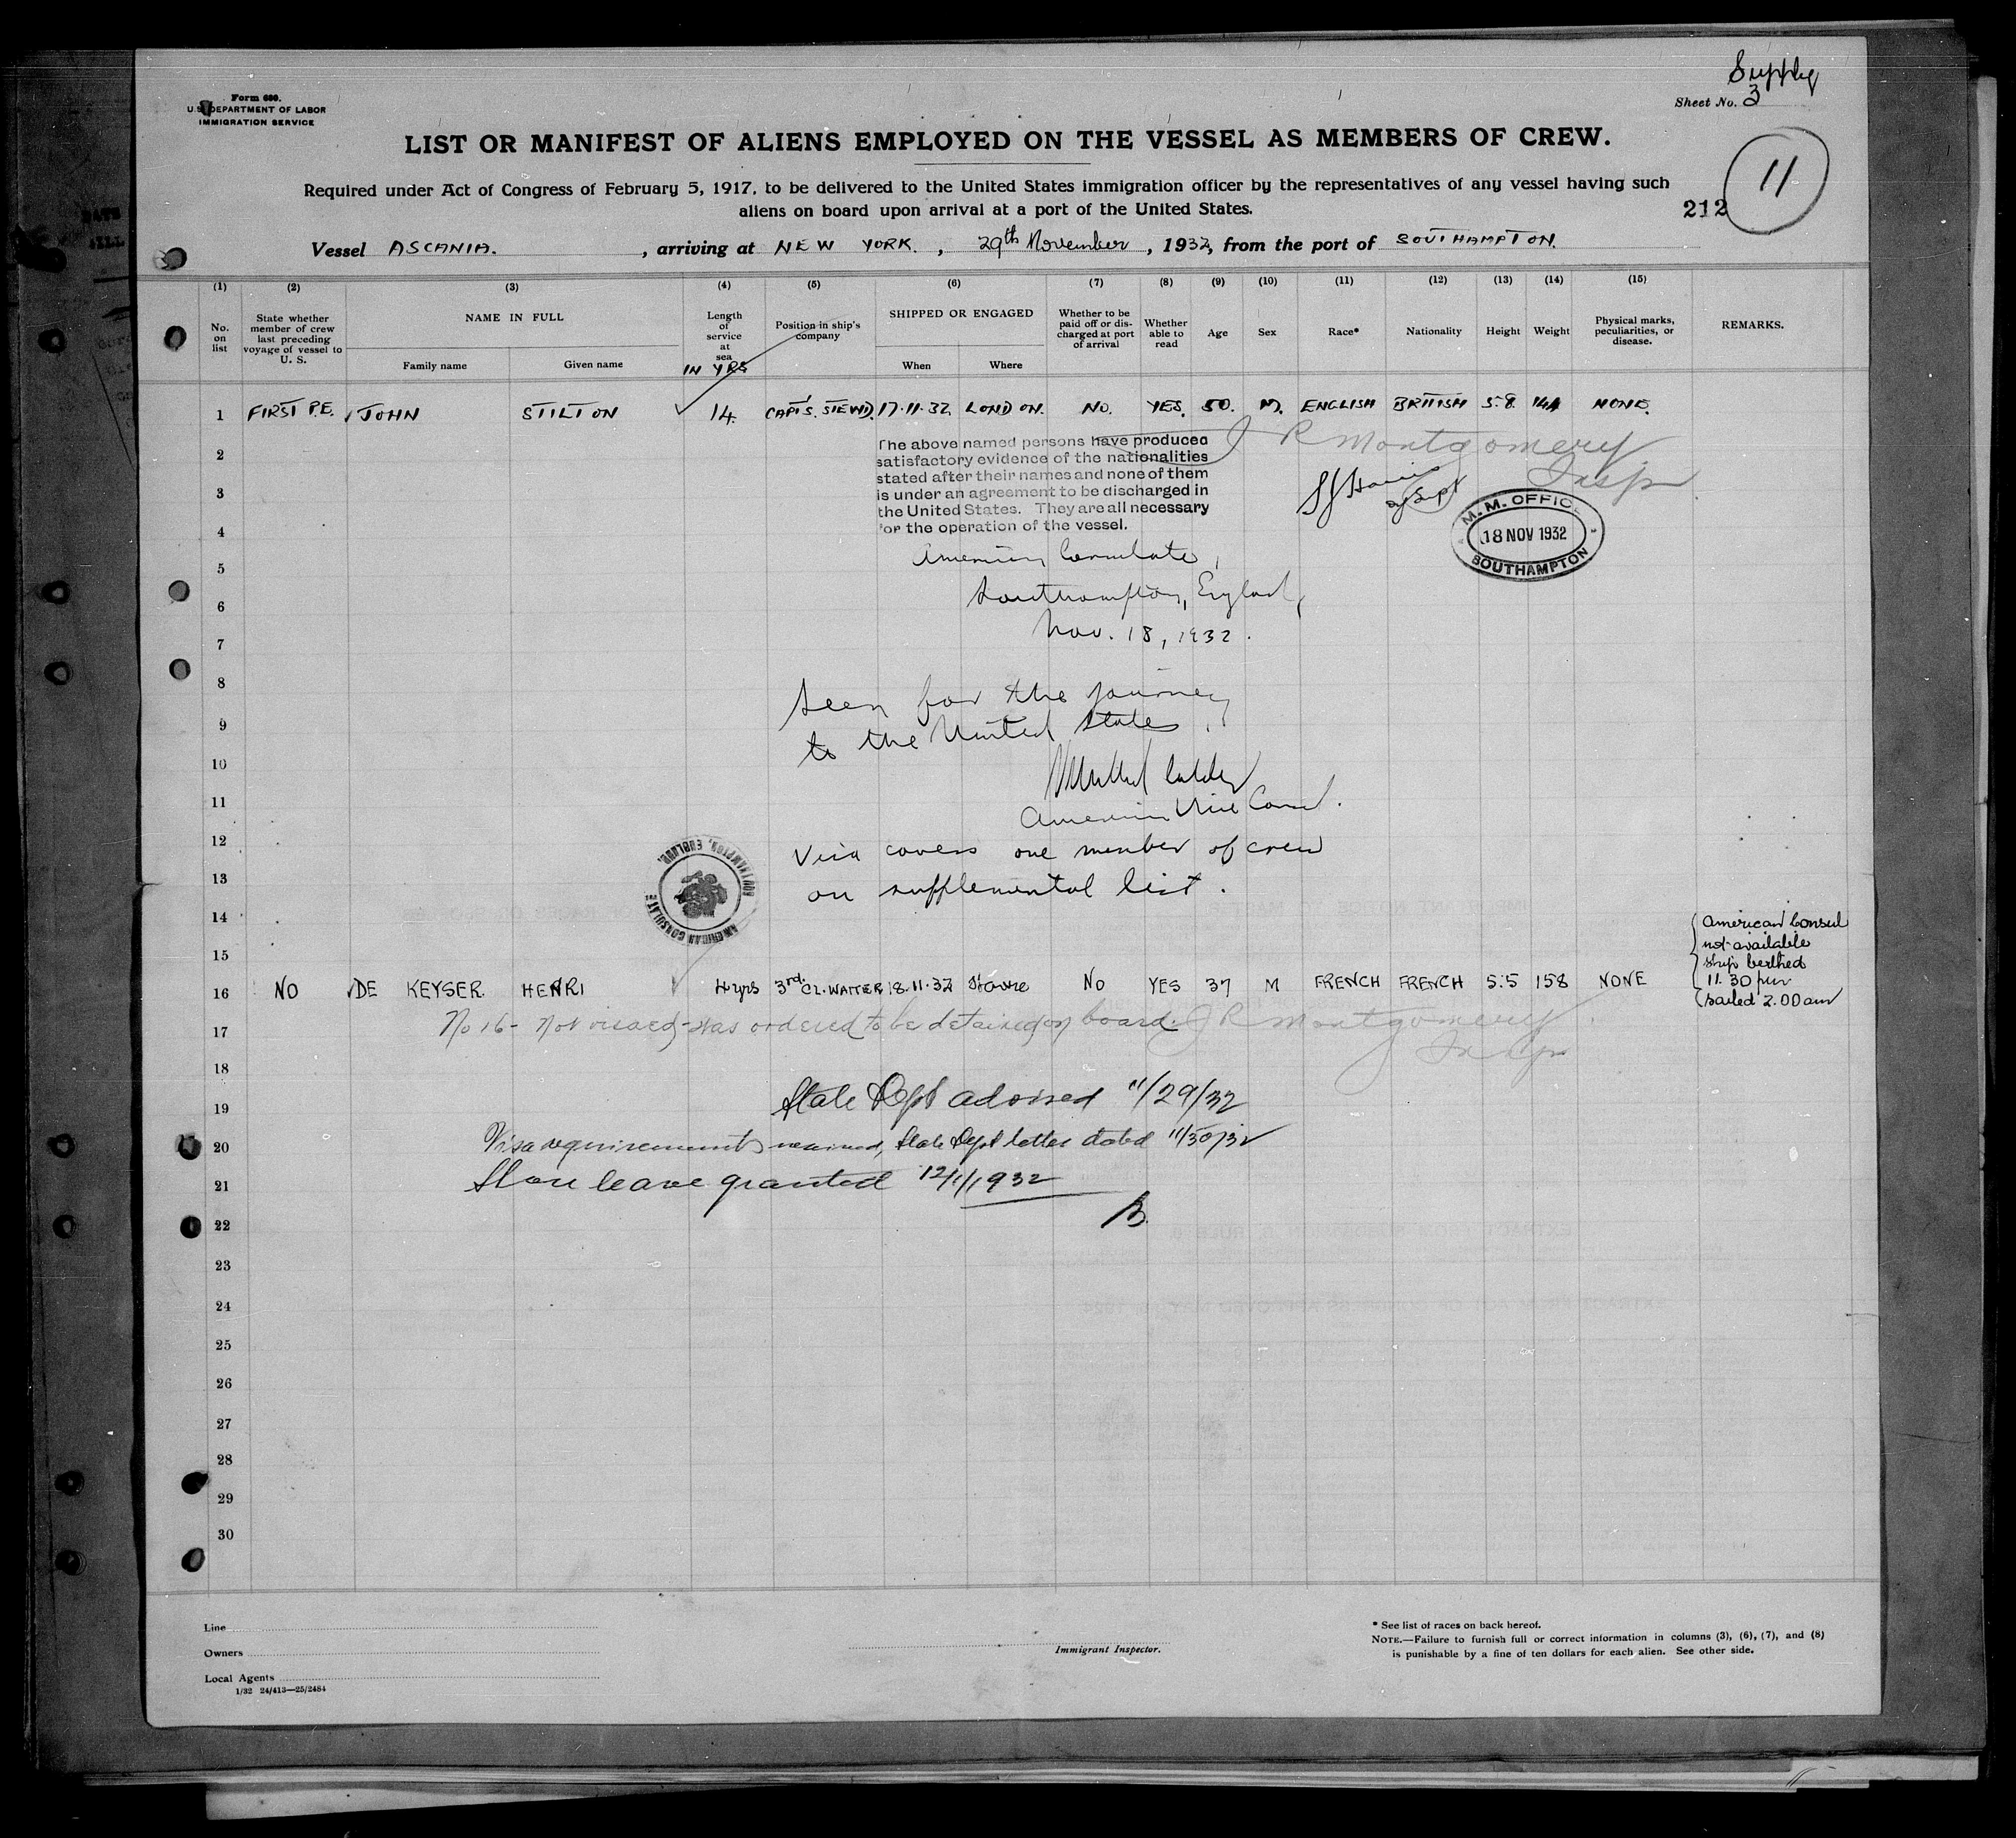 Supply
Sheet No. 3
Form 680.
U.S. DEPARTMENT OF LABOR
IMMIGRATION SERVICE
LIST OR MANIFEST OF ALIENS EMPLOYED ON THE VESSEL AS MEMBERS OF CREW.
11
Required under Act of Congress of February 5, 1917, to be delivered to the United States immigration officer by the representatives of any vessel having such
aliens on board upon arrival at a port of the United States.
212
Vessel ASCANIA. , arriving at NEW YORK. , 29th November , 1932, from the port of SOUTHAMPTON.
(1) (2) (3) (4) (5) (6) (7) (8) (9) (10) (11) (12) (13) (14) (15)
No. on list
State whether member of crew last preceding voyage of vessel to U. S.
NAME IN FULL
Family name Given name
Length of service at sea
IN YRS
Position in ship's company
SHIPPED OR ENGAGED
When Where
Whether to be paid off or discharged at port of arrival
Whether able to read
Age
Sex
Race*
Nationality
Height
Weight
Physical marks, peculiarities, or disease.
REMARKS.
1 FIRST P.E. JOHN STILTON 14. CAPT'S. STEWD. 17.11.32 LONDON. NO. YES. 50. M. ENGLISH BRITISH 5.8. NONE.
The above named persons have produced
satisfactory evidence of the nationalities
stated after their names and none of them
is under an agreement to be discharged in
the United States. They are all necessary
for the operation of the vessel.
J R Montgomery
Insp
M.M. OFFICE
18 NOV 1932
SOUTHAMPTON
2
3
4
5
American Consulate,
6
Southampton, England,
7
Nov. 18, 1932.
8
Seen for the journey
9
to the United States.
10
11
American Vice Consul.
12
Visa covers one member of crew
13
on supplemental list.
AMERICAN CONSULATE
SOUTHAMPTON, ENGLAND.
14
15
American Consul
not available
ship berthed
11.30 pm
sailed 2.00 am
16 NO DE KEYSER HENRI 4 yrs 3rd Cl. WAITER 18.11.32 Havre NO YES 37 M FRENCH FRENCH 5.5 158 NONE
No 16 - Not visaed - was ordered to be detained on board. J R Montgomery
Insp
17
18
19
State Dept advised 11/29/32
20
Visa requirements waived, State Dept letter dated 11/30/32
21
Shore leave granted 12/1/1932
22
B.
23
24
25
26
27
28
29
30
Line
Owners
Local Agents
1/32 24/413—25/2484
Immigrant Inspector.
* See list of races on back hereof.
NOTE.—Failure to furnish full or correct information in columns (3), (6), (7), and (8)
is punishable by a fine of ten dollars for each alien. See other side.